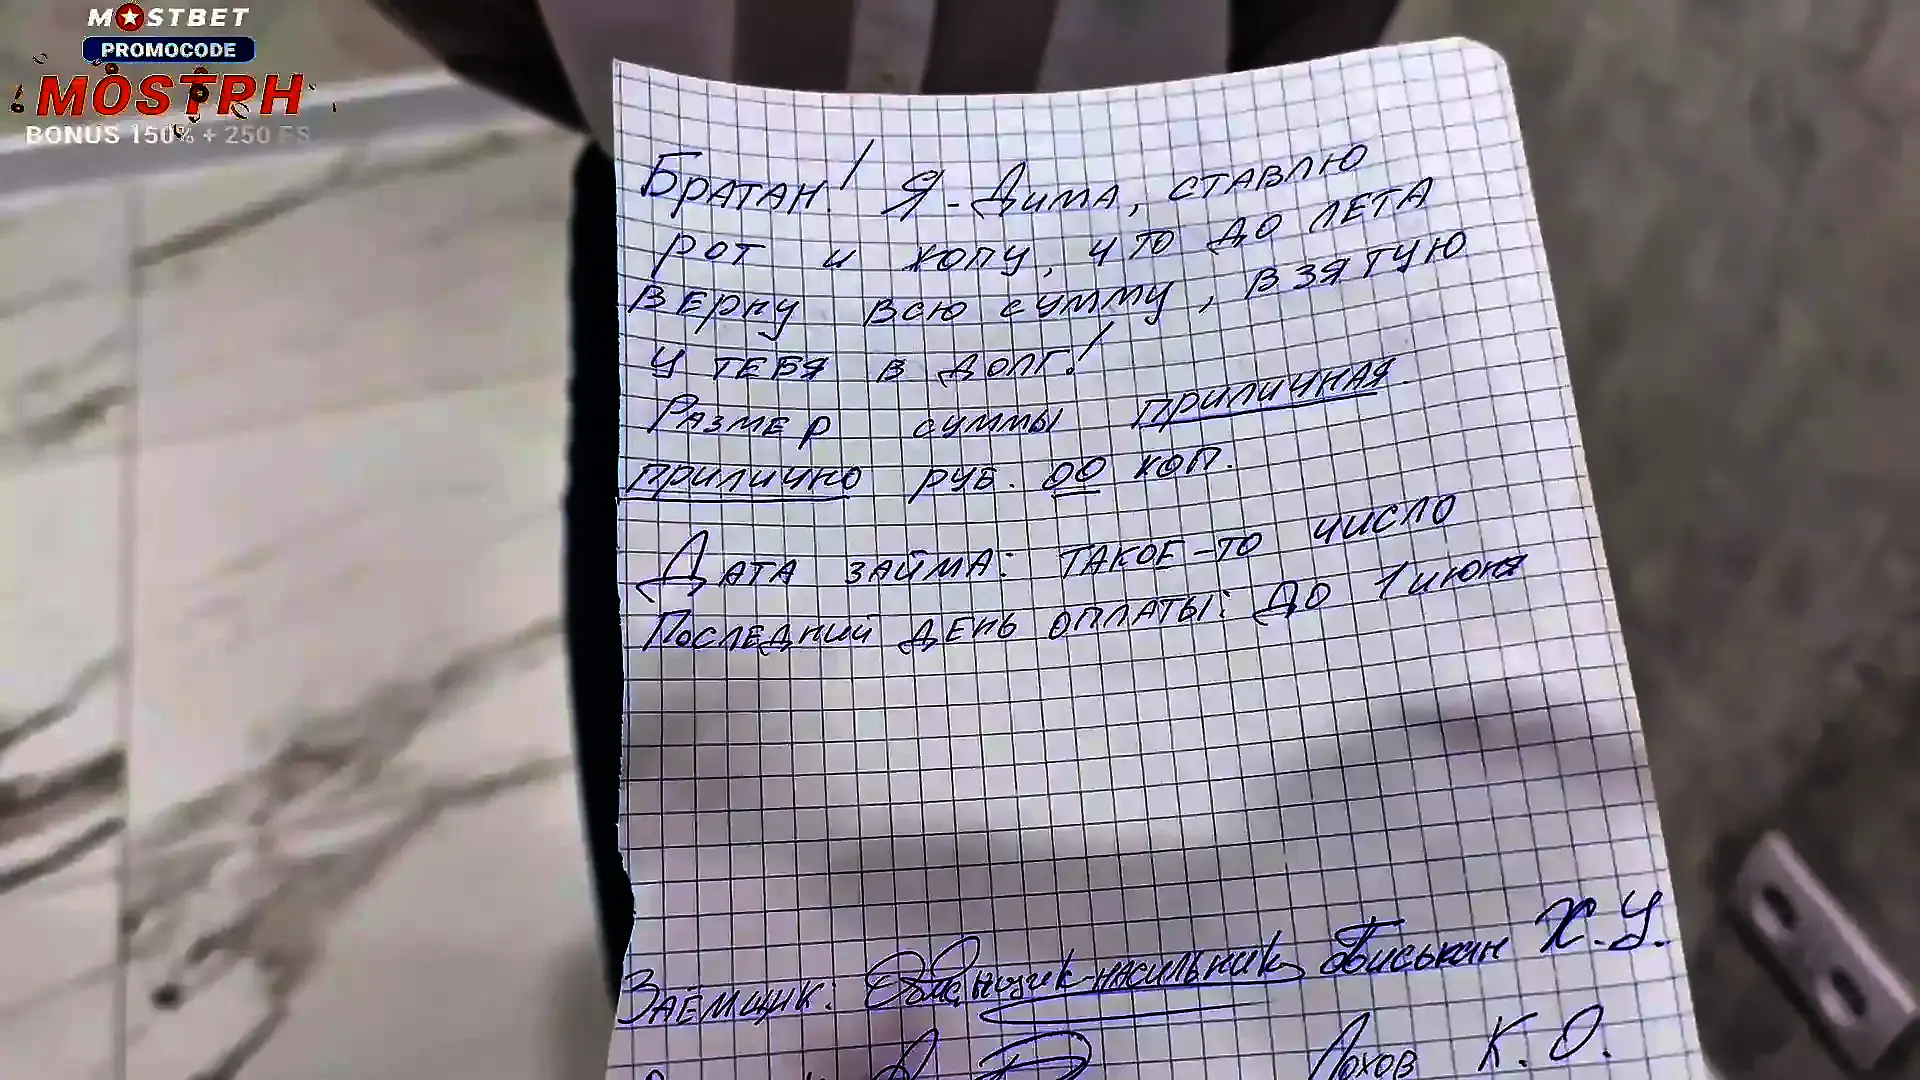 MOSTBET
PROMOCODE
MOSTPH
BONUS 150% + 250 FS
Братан! Я - Дима, ставлю
рот и жопу, что до лета
верну всю сумму, взятую
у тебя в долг!
Размер суммы приличная
прилично руб. 00 коп.
Дата займа: такое-то число
Последний день оплаты: до 1 июня
Заёмщик: Обманщик-насильник Х.У.
Лохов К.О.